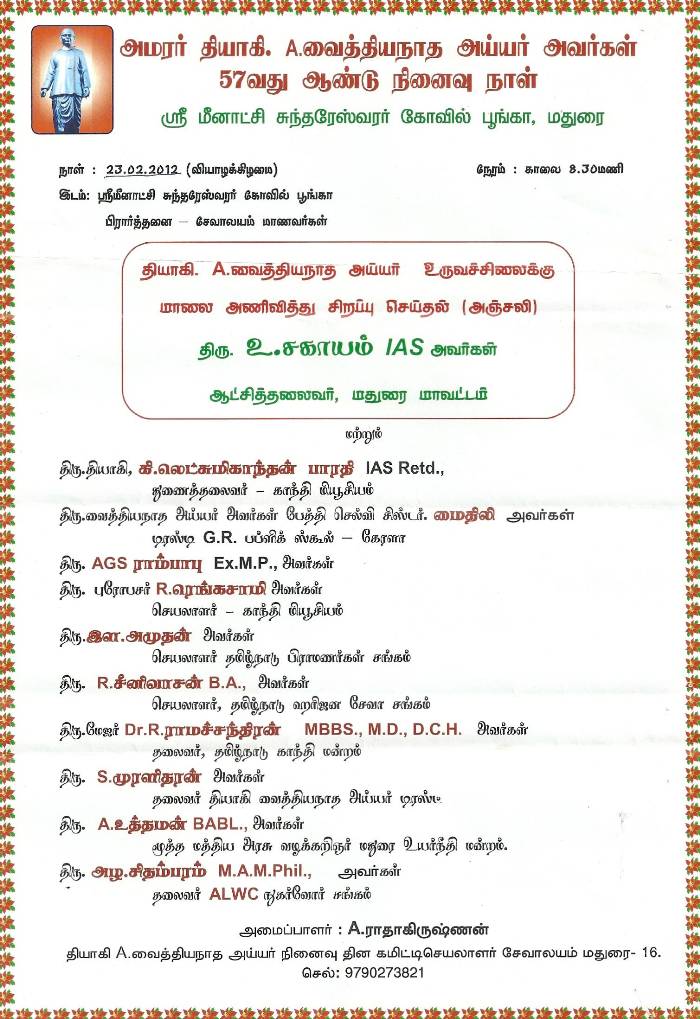 அமரர் தியாகி. A.வைத்தியநாத அய்யர் அவர்கள்
57வது ஆண்டு நினைவு நாள்
ஸ்ரீ மீனாட்சி சுந்தரேஸ்வரர் கோவில் பூங்கா, மதுரை
நாள் : 23.02.2012 (வியாழக்கிழமை) நேரம் : காலை 8.30மணி
இடம்: ஸ்ரீமீனாட்சி சுந்தரேஸ்வரர் கோவில் பூங்கா
பிரார்த்தனை – சேவாலயம் மாணவர்கள்
தியாகி. A.வைத்தியநாத அய்யர் உருவச்சிலைக்கு
மாலை அணிவித்து சிறப்பு செய்தல் (அஞ்சலி)
திரு. உ.சகாயம் IAS அவர்கள்
ஆட்சித்தலைவர், மதுரை மாவட்டம்
மற்றும்
திரு.தியாகி, கி.லெட்சுமிகாந்தன் பாரதி IAS Retd.,
துணைத்தலைவர் – காந்தி மியூசியம்
திரு.வைத்தியநாத அய்யர் அவர்கள் பேத்தி செல்வி சிஸ்டர். மைதிலி அவர்கள்
டிரஸ்டி G.R. பப்ளிக் ஸ்கூல் – கேரளா
திரு. AGS ராம்பாபு Ex.M.P., அவர்கள்
திரு. புரோபசர் R.ரெங்கசாமி அவர்கள்
செயலாளர் – காந்தி மியூசியம்
திரு.இள.அமுதன் அவர்கள்
செயலாளர் தமிழ்நாடு பிராமணர்கள் சங்கம்
திரு. R.சீனிவாசன் B.A., அவர்கள்
செயலாளர், தமிழ்நாடு ஹரிஜன சேவா சங்கம்
திரு.மேஜர் Dr.R.ராமச்சந்திரன் MBBS., M.D., D.C.H. அவர்கள்
தலைவர், தமிழ்நாடு காந்தி மன்றம்
திரு. S.முரளிதரன் அவர்கள்
தலைவர் தியாகி வைத்தியநாத அய்யர் டிரஸ்ட்
திரு. A.உத்தமன் BABL., அவர்கள்
மூத்த மத்திய அரசு வழக்கறிஞர் மதுரை உயர்நீதி மன்றம்.
திரு. அழ.சிதம்பரம் M.A.M.Phil., அவர்கள்
தலைவர் ALWC நுகர்வோர் சங்கம்
அமைப்பாளர் : A.ராதாகிருஷ்ணன்
தியாகி A.வைத்தியநாத அய்யர் நினைவு தின கமிட்டிசெயலாளர் சேவாலயம் மதுரை- 16.
செல்: 9790273821